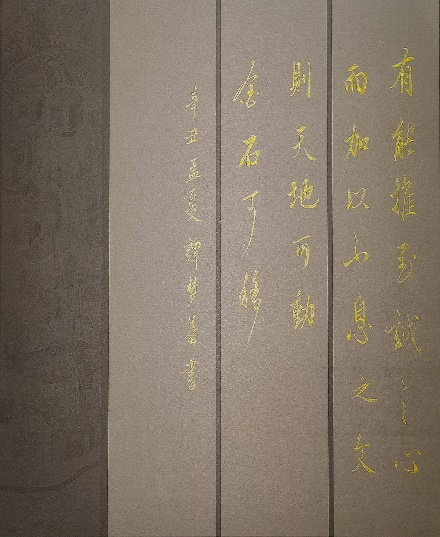 有能推至誠之心
而加以不息之久
則天地可動
金石可移
辛丑孟夏譚梦
書